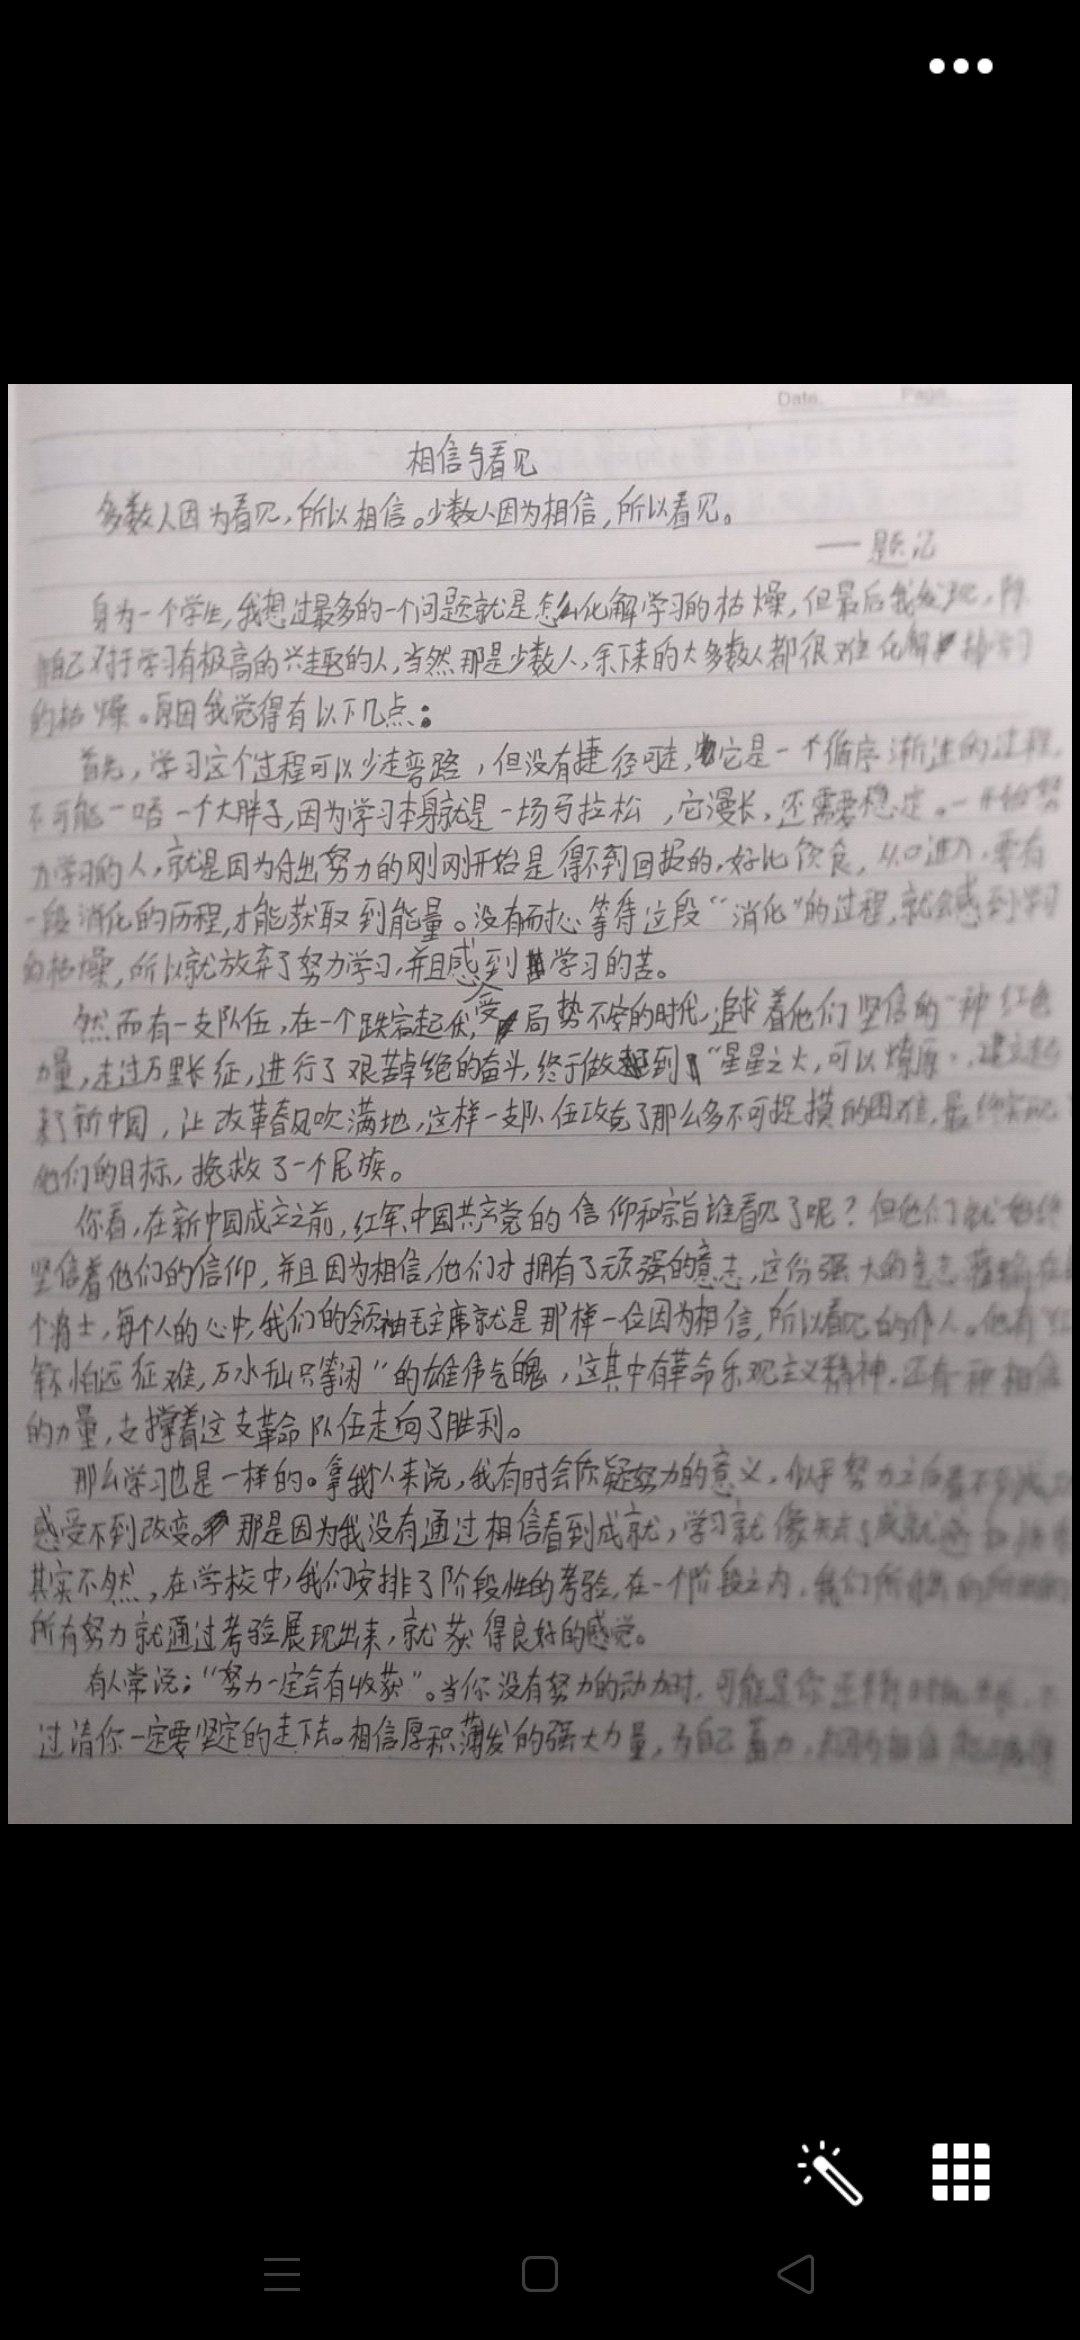 Date.
Page
相信与看见
多数人因为看见,所以相信。少数人因为相信,所以看见。
——题记
身为一个学生,我想过最多的一个问题就是怎么化解学习的枯燥,但最后我发现,除
自己对于学习有极高的兴趣的人,当然那是少数人,余下来的大多数人都很难化解掉学习
的枯燥。原因我觉得有以下几点:
首先,学习这个过程可以少走弯路,但没有捷径可走,它是一个循序渐进的过程,
不可能一唔一个大胖子,因为学习本身就是一场马拉松,它漫长,还需要稳定。一开始努
力学习的人,就是因为付出努力的刚刚开始是得不到回报的,好比饮食,从口进入,要有
一段消化的历程,才能获取到能量。没有耐心等待这段“消化”的过程,就会感到学习
的枯燥,所以就放弃了努力学习,并且感受到学习的苦。
然而有一支队伍,在一个跌宕起伏,局势不安的时代,追求着他们坚信的一种红色
力量,走过万里长征,进行了艰苦卓绝的奋斗,终于做到“星星之火,可以燎原”,建立起
来了新中国,让改革春风吹满地,这样一支队伍攻克了那么多不可捉摸的困难,最终实现
他们的目标,挽救了一个民族。
你看,在新中国成立之前,红军、中国共产党的信仰和宗旨谁看见了呢?但他们就始终
坚信着他们的信仰,并且因为相信,他们才拥有了顽强的意志,这份强大的意志
个将士,每个人的心中,我们的领袖毛主席就是那样一位因为相信,所以看见的伟人。他有“红
军不怕远征难,万水千山只等闲”的雄伟气魄,这其中有革命乐观主义精神,还有一种相信
的力量,支撑着这支革命队伍走向了胜利。
那么学习也是一样的。拿我个人来说,我有时会质疑努力的意义,似乎努力之后看不到
感受不到改变。那是因为我没有通过相信看到成就,学习就像失去了成就感
其实不然,在学校中,我们安排了阶段性的考验,在一个阶段之内,我们所
所有努力就通过考验展现出来,就获得良好的感觉。
有人常说:“努力一定会有收获”。当你没有努力的动力时,可能是你
过请你一定要坚定的走下去。相信厚积薄发的强大力量,为自己蓄力,